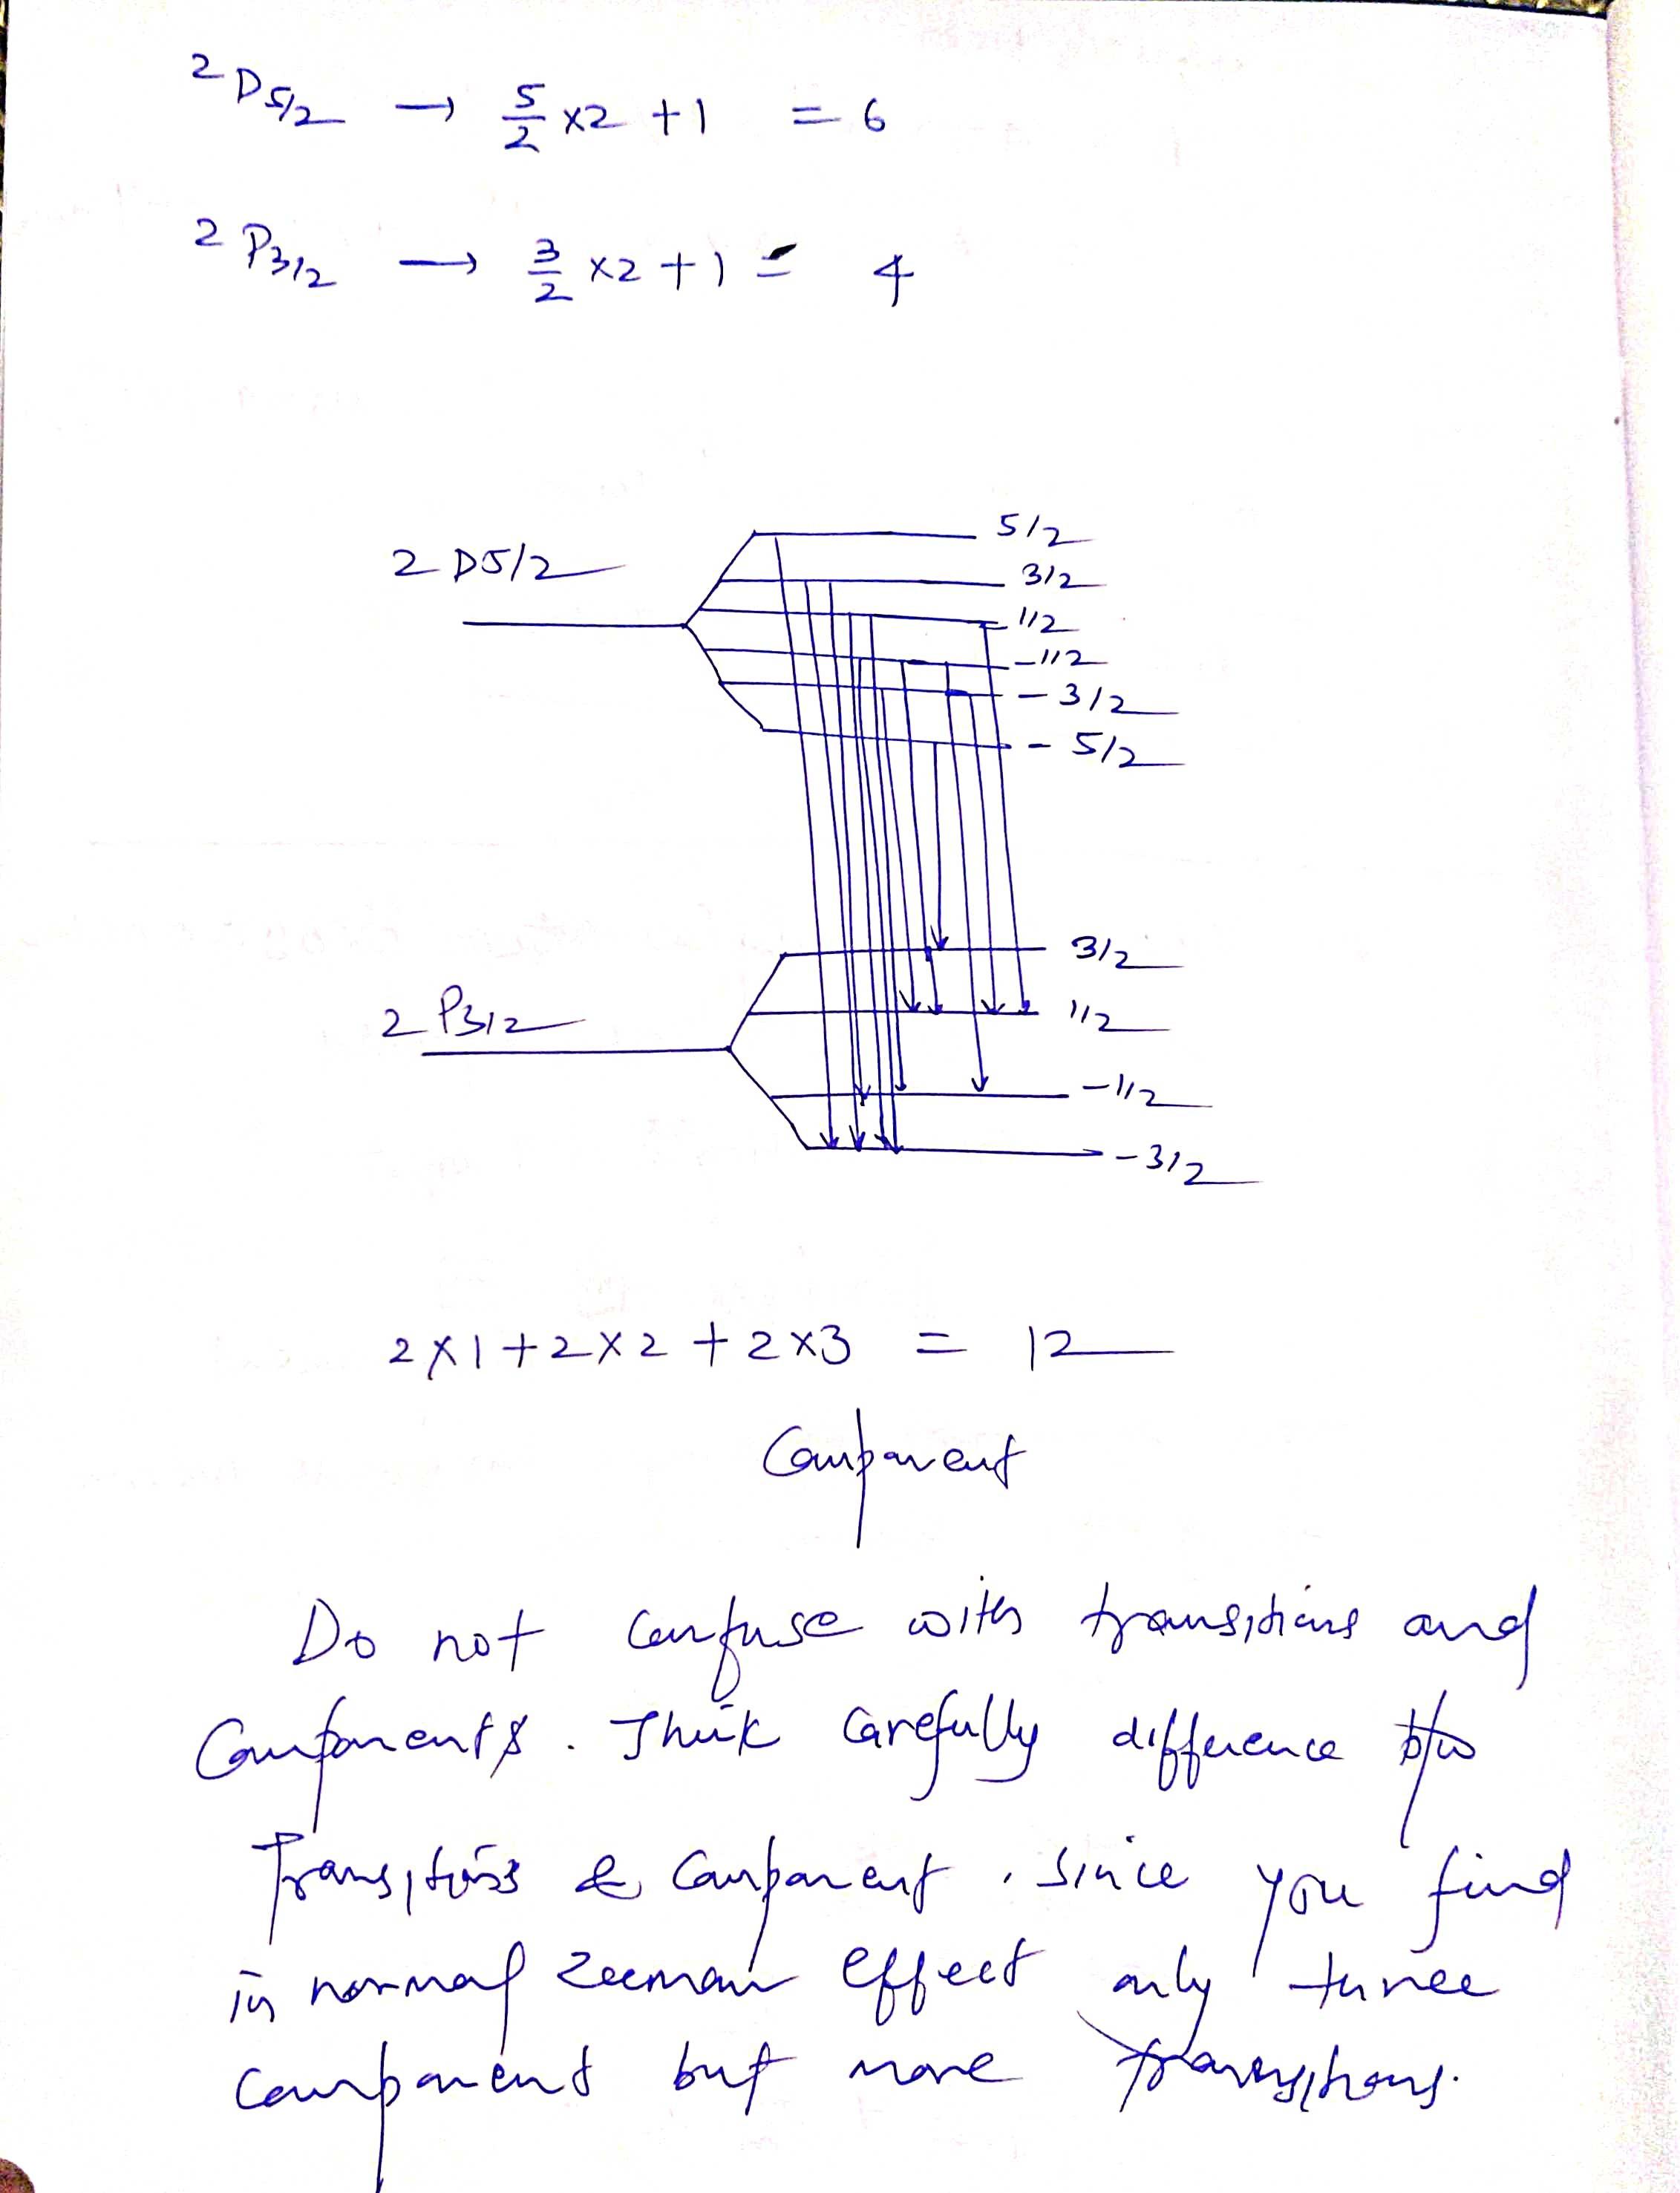 2 D 5/2 → 5/2 ×2 +1 = 6
2 P3/2 → 3/2 ×2 +1 = 4
2 D5/2
5/2
3/2
1/2
-1/2
- 3/2
- 5/2
2 P3/2
3/2
1/2
-1/2
-3/2
2×1+2×2+2×3 = 12
Component
Do not confuse with transitions and
Components. Think Carefully difference b/w
Transitions & Component. Since you find
in normal Zeeman effect only three
component but more transitions.